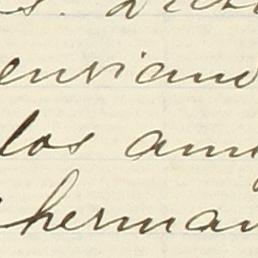 enviand
los ami
herman